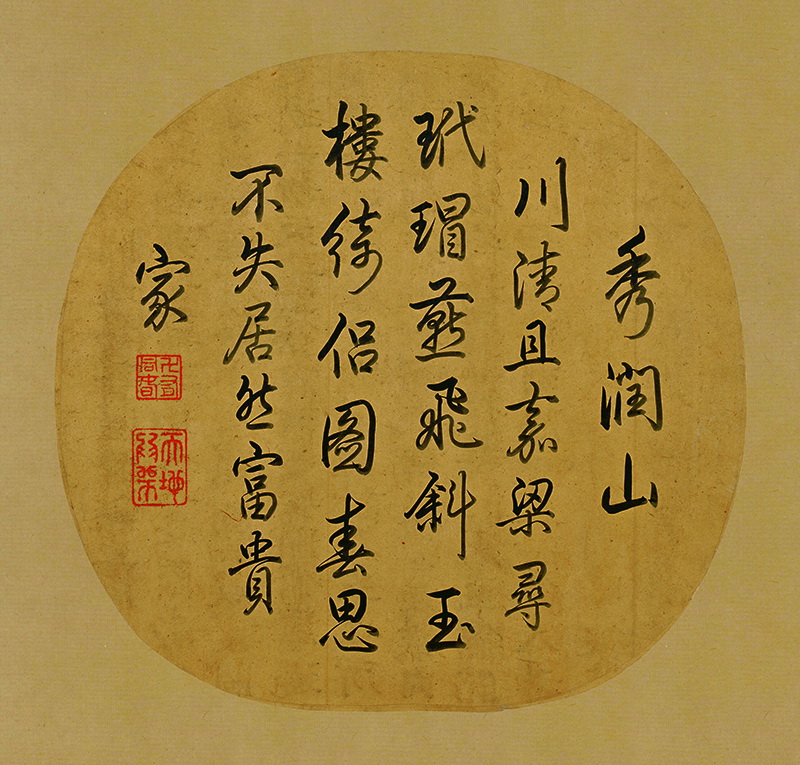 秀潤山
川清且嘉梁尋
玳瑁燕飛斜玉
樓綺侣圖春思
不失居然富貴
家